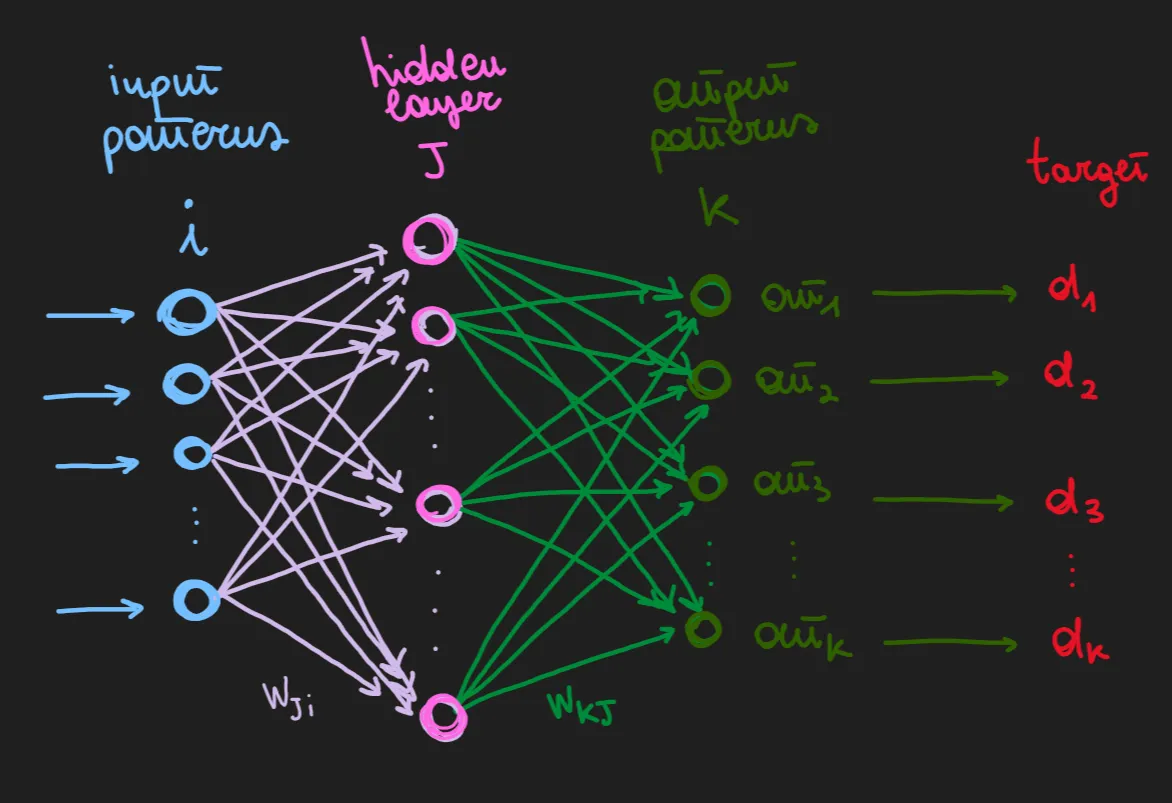 input
patterns
i
hidden
layer
J
output
patterns
k
target
out1
d1
out2
d2
out3
d3
outk
dk
wJi
wKJ